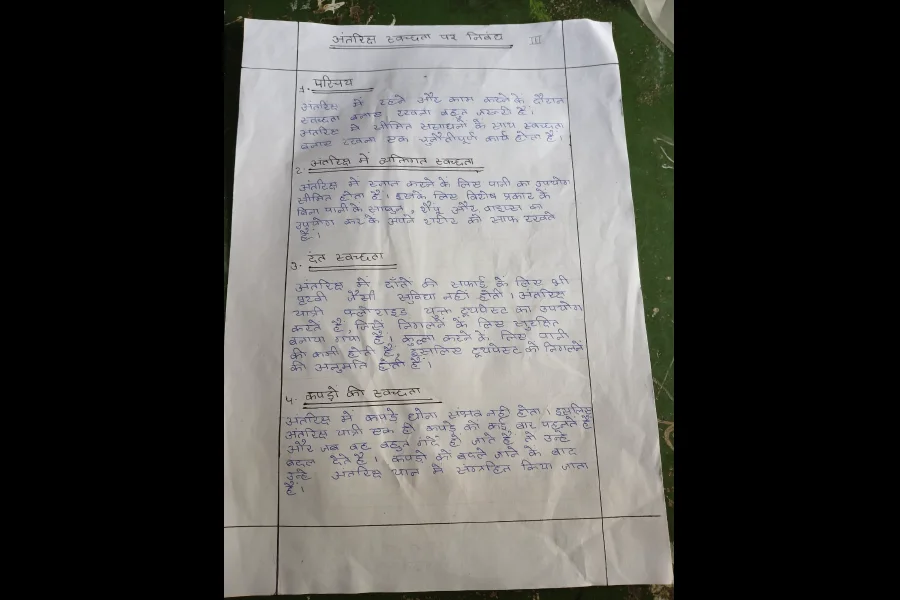 अंतरिक्ष स्वच्छता पर निबंध III
1. परिचय
अंतरिक्ष में रहने और काम करने के दौरान
स्वच्छता बनाए रखना बहुत जरूरी है।
अंतरिक्ष में सीमित संसाधनों के साथ स्वच्छता
बनाए रखना एक चुनौतीपूर्ण कार्य होता है।
2. अंतरिक्ष में व्यक्तिगत स्वच्छता
अंतरिक्ष में स्नान करने के लिए पानी का उपयोग
सीमित होता है। इसके लिए विशेष प्रकार के
बिना पानी के साबुन, शैंपू और वाइप्स का
उपयोग कर के अपने शरीर को साफ रखते
हैं।
3. दंत स्वच्छता
अंतरिक्ष में दाँतों की सफाई के लिए भी
पृथ्वी जैसी सुविधा नहीं होती। अंतरिक्ष
यात्री फ्लोराइड युक्त टूथपेस्ट का उपयोग
करते है, जिसे निगलने के लिए सुरक्षित
बनाया गया है, कुल्ला करने के लिए पानी
की कमी होती है, इसलिए टूथपेस्ट को निगलने
की अनुमति होती है।
4. कपड़ो की स्वच्छता
अंतरिक्ष में कपड़े धोना संभव नही होता। इसलिए
अंतरिक्ष यात्री एक ही कपड़े को कई बार पहनते है
और जब वह बहुत गंदे हो जाते है तो उन्हे
बदल देते है। कपड़ो को बदले जाने के बाद
उन्हे अंतरिक्ष यान मे संग्रहित किया जाता
है।